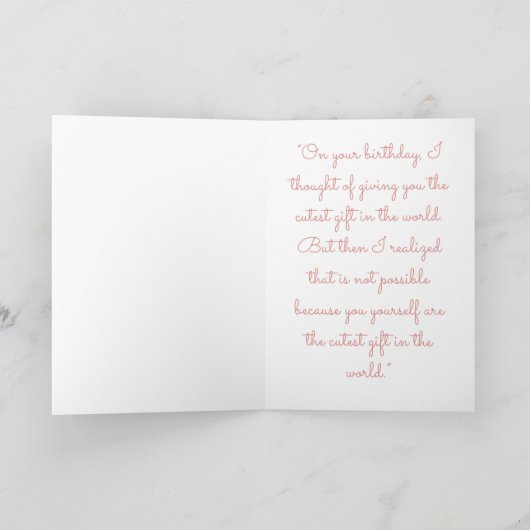 "On your birthday, I
thought of giving you the
cutest gift in the world.
But then I realized
that is not possible
because you yourself are
the cutest gift in the
world."